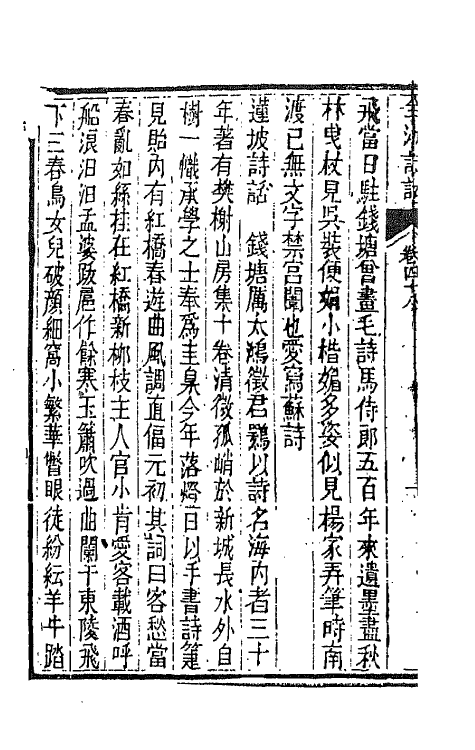 全浙詩話 卷四十八
飛當日駐錢塘會畫毛詩馬侍郎五百年來遺墨盡秋
林曳杖見吳裝便娟小楷媚多姿似見楊家弄筆時南
渡已無文字禁宫闈也愛寫蘇詩
蓮坡詩話　錢塘厲太鴻徵君鶚以詩名海内者三十
年著有樊榭山房集十卷清微孤峭於新城長水外自
樹一幟承學之士奉爲圭臬今年落燈日以手書詩箑
見貽内有紅橋春遊曲風調直偪元初其詞曰客愁當
春亂如絲挂在紅橋新柳枝主人官小肯愛客載酒呼
船浪汨汨孟婆歇扈作餘寒玉簫吹過曲闌干東陵飛
下三春鳥女兒破顔細窩小繁華瞥眼徒紛紜羊牛踏